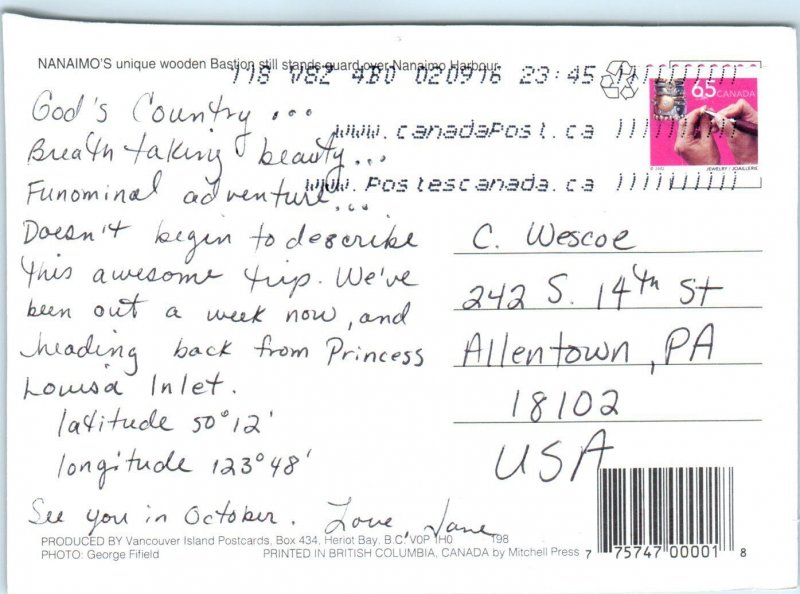 NANAIMO'S unique wooden Bastion still stands guard over Nanaimo Harbour
118 V8Z 4B0 020916 23:45
65 CANADA
www.canadaPost.ca
www.Postescanada.ca
JEWELRY / JOAILLERIE
God's Country ...
Breath taking beauty...
Funominal adventure...
Doesn't begin to describe
this awesome trip. We've
been out a week now, and
heading back from Princess
Louisa Inlet.
latitude 50° 12'
longitude 123° 48'
See you in October. Love, Jane
C. Wescoe
242 S. 14th St
Allentown, PA
18102
USA
PRODUCED BY Vancouver Island Postcards, Box 434, Heriot Bay, B.C. V0P 1H0 198
PHOTO: George Fifield PRINTED IN BRITISH COLUMBIA, CANADA by Mitchell Press
7 75747 00001 8